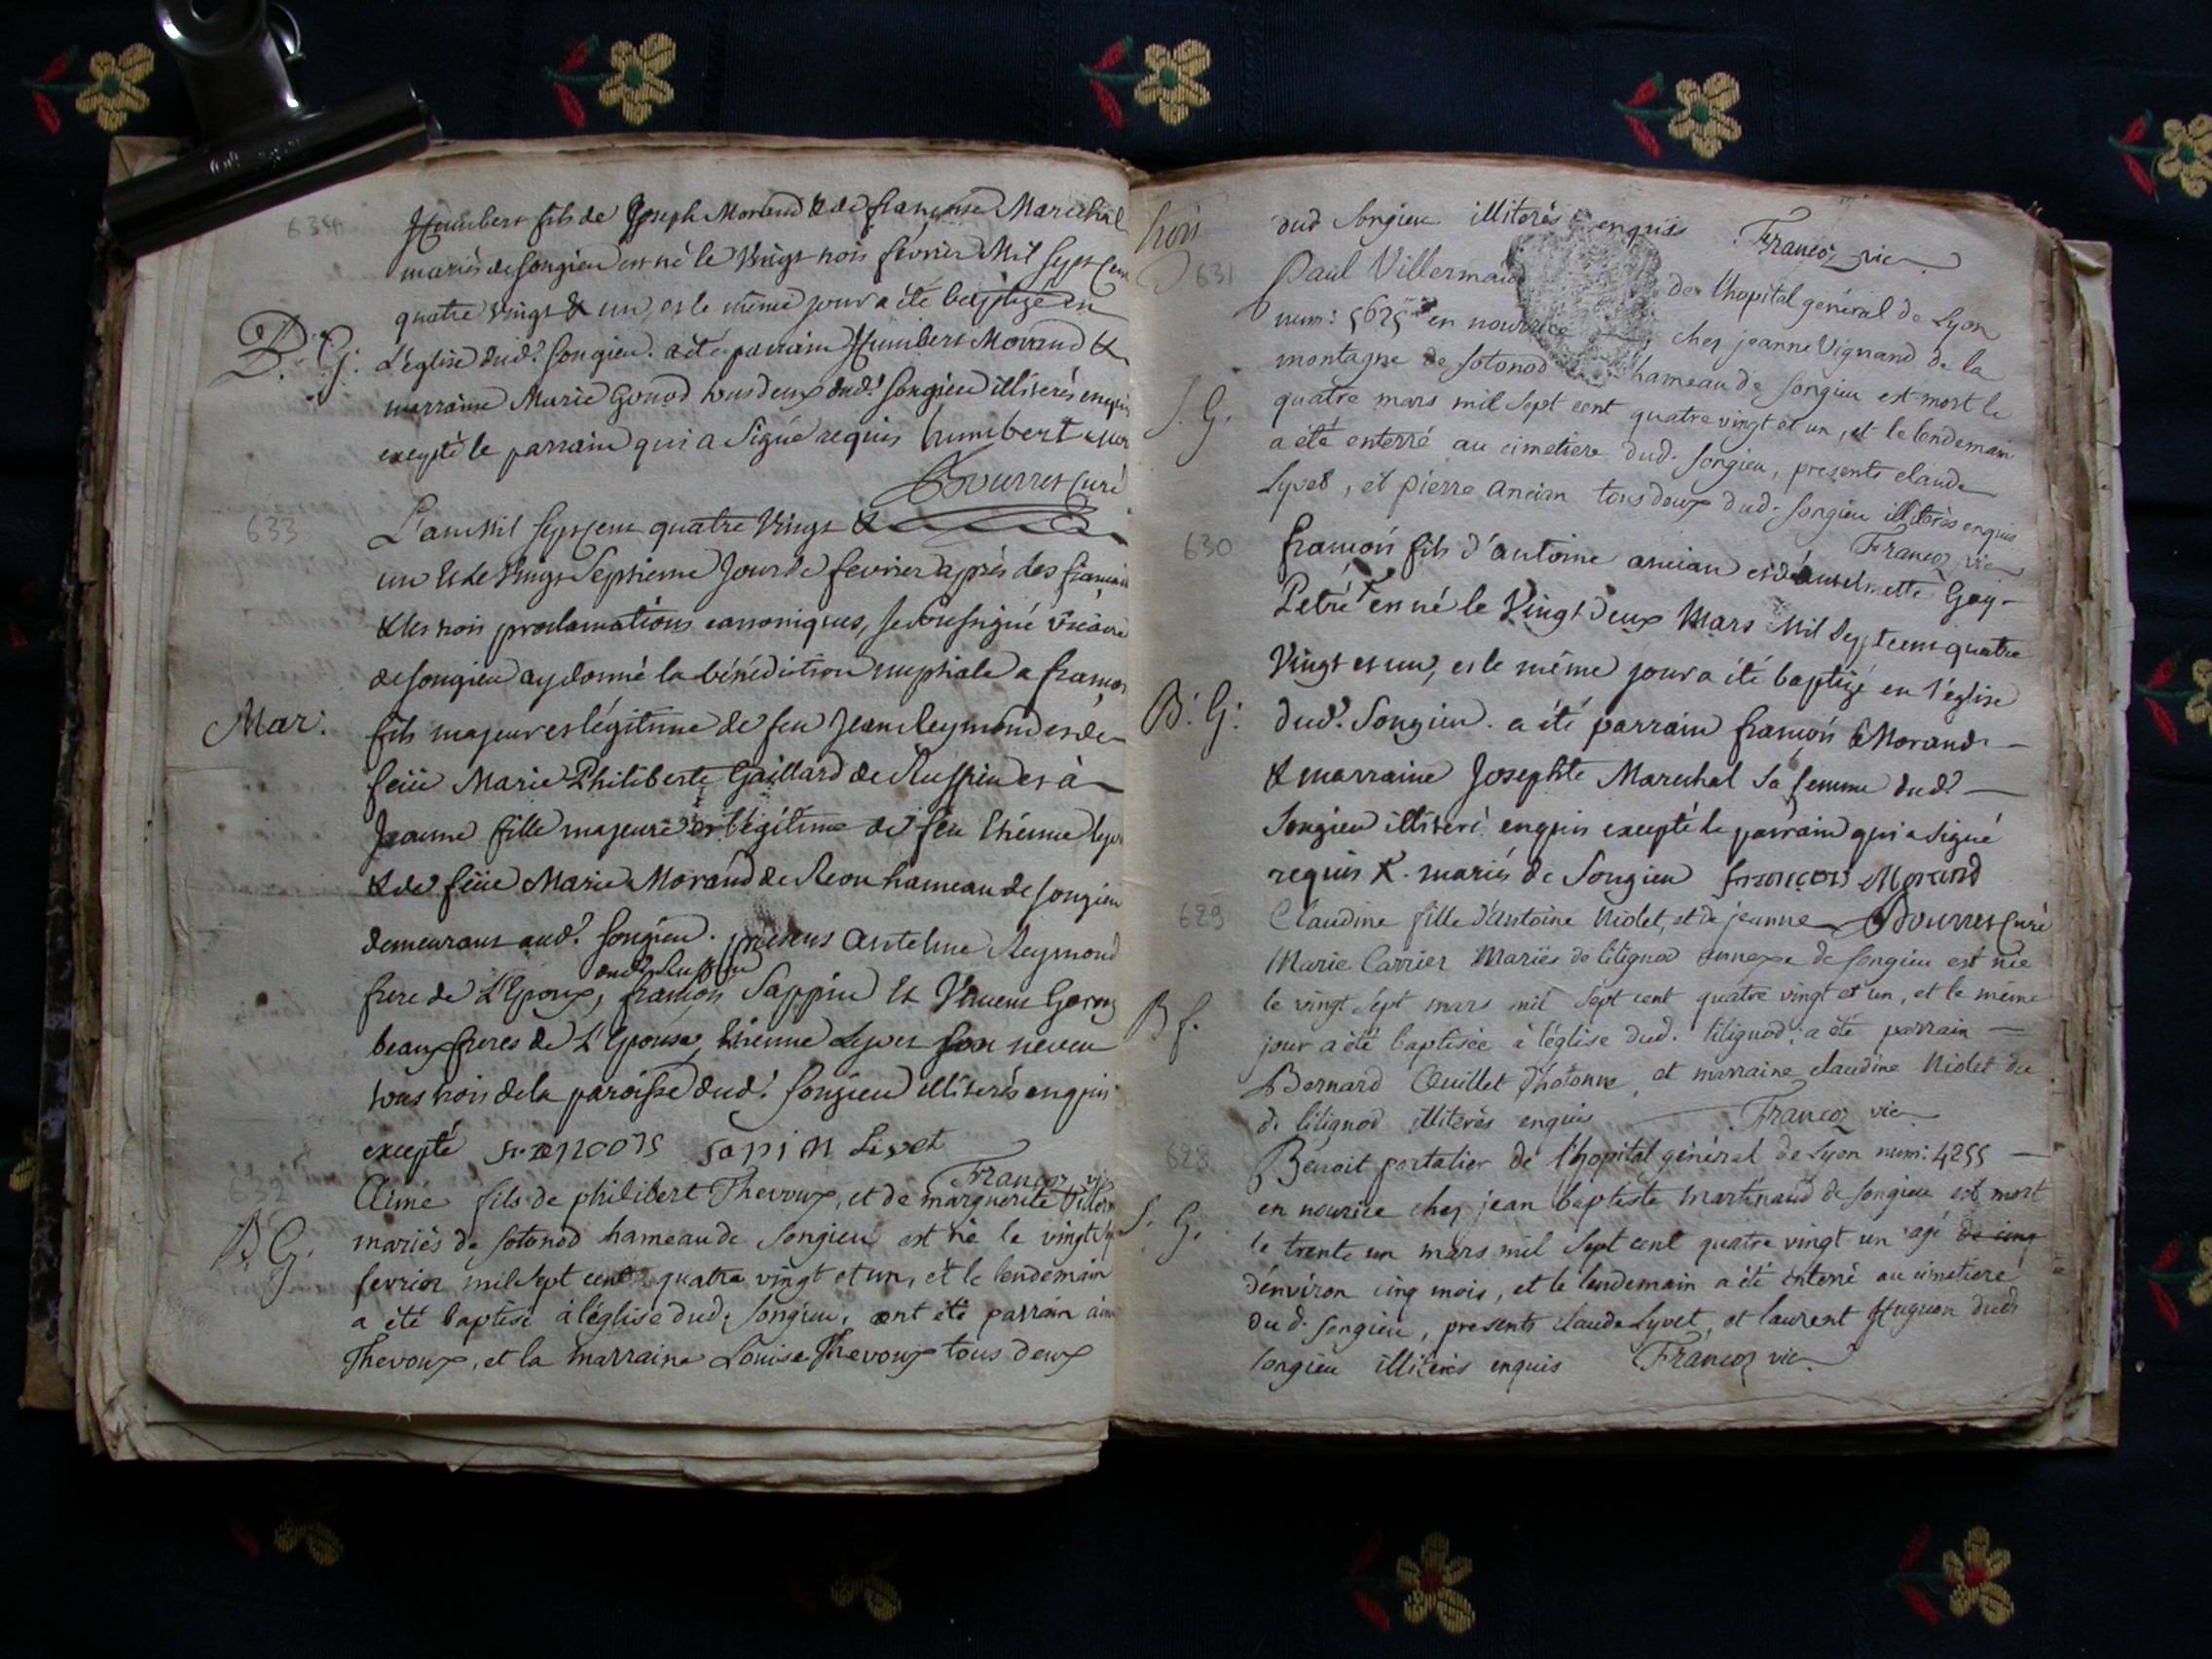 634
Humbert fils de Joseph Morand & de françoise Marechal
mariés de songieu est né le vingt trois février Mil sept cen
quatre vingt & un, et le même jour a été baptizé en
B. G: L'église dud.t songieu. a été parrain Humbert Morand &
marraine Marie Gonod tous deux dud.t songieu illiterés enquis
excepté le parrain qui a signé requis humbert
Bourret curé
633
L'an Mil sept cent quatre vingt &
un & le vingt septieme jour de fevrier après les fiançail
& les trois proclamations canoniques, je soussigné vicaire
de songieu ay donné la bénédiction nuptiale a françois
Mar: fils majeur et légitime de feu Jean Reymond et de
feüe Marie Philiberte Gaillard de Ruffieu et à
Jeanne fille majeure et légitime de feu Etienne lyvet
& de feüe Marie Morand de hameau de songieu
demeurant aud.t songieu. presens Antelme Reymond
dud.t Ruffieu
frere de L'Epoux, françois Sappin & Vincent
beaux freres de L'Epouse, Etienne Lyvet son neveu
tous trois de la paroisse dud.t songieu illiterés enquis
excepté francois sapin Livet
Francoz vic
632
Aimé fils de philibert Thevoux, et de marguerite
B. G. mariés de sotonod hameau de songieu est né le vingt
fevrier mil sept cent quatre vingt et un, et le lendemain
a été baptisé à l'église dud. songieu, ont été parrain
Thevoux, et la marraine Louise Thevoux tous deux
dud songieu illiterés enquis Francoz vic
631
Paul Villermaud de l'hopital genéral de Lyon
num: 5625 en nourrice chez jeanne Vignand de la
montagne de sotonod hameau de songieu est mort le
S. G. quatre mars mil sept cent quatre vingt et un, et le lendemain
a été enterré au cimetiere dud. songieu, presents claude
Lyvet, et pierre ancian tous deux dud. songieu illiterés enquis
Francoz vic
630
françois fils d'antoine ancian et d'antelmette Goy-
Petré X est né le vingt deux Mars Mil sept cent quatre
vingt et un, et le même jour a été baptizé en l'église
B. G: dud.t songieu. a été parrain françois Morand
& marraine Josephte Marechal sa femme dud.t
songieu illiteré enquis excepté le parrain qui a signé
requis X. mariés de songieu francois Morand
629
Claudine fille d'antoine Niolet, et de jeanne Bourret curé
Marie Carrier Mariés de lilignod annexe de songieu est née
B f. le vingt sept mars mil sept cent quatre vingt et un, et le même
jour a été baptisée à l'église dud. lilignod; a été parrain
Bernard Quillet d'hotonne, et marraine claudine Niolet du
d. lilignod illiterés enquis Francoz vic
628
Benoit portalier de l'hopital général de Lyon num: 4255
S. G. en nourice chez jean baptiste Martinand de songieu est mort
le trente un mars mil sept cent quatre vingt un agé de cinq
d'environ cinq mois, et le lendemain a été enterré au cimetiere
dud. songieu, presents claude Lyvet, et laurent Hugon dud
songieu illiterés enquis Francoz vic.